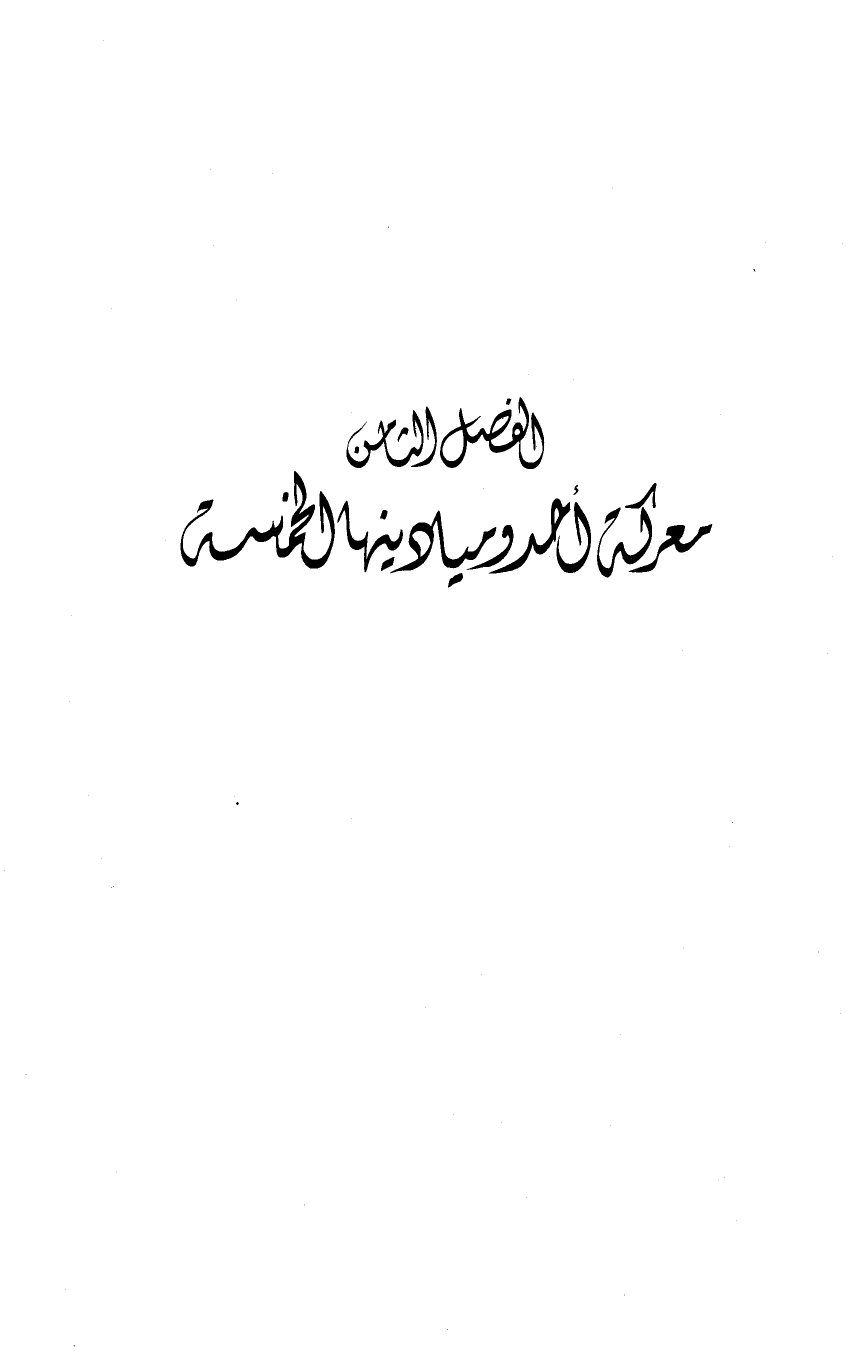 الفصل الثامن
معركة أحد وميادينها الخمسة